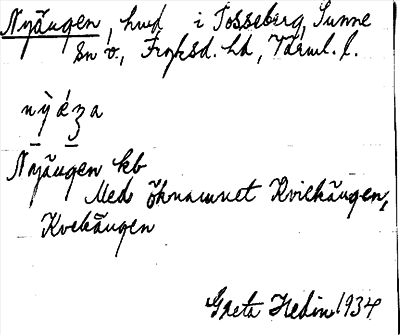 Nyängen, hmd i Tosseberg, Sunne
sn o, Fryksd. hd, Värml. l.
nỳéʒa
Nyängen kb
Med öknamnet Kvickängen,
Kvekängen
Greta Hedin 1934